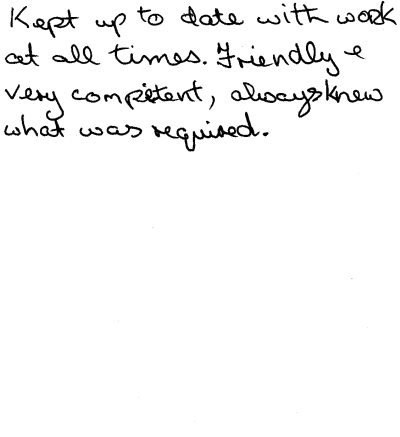 Kept up to date with work
at all times. Friendly &
very competent, always knew
what was required.